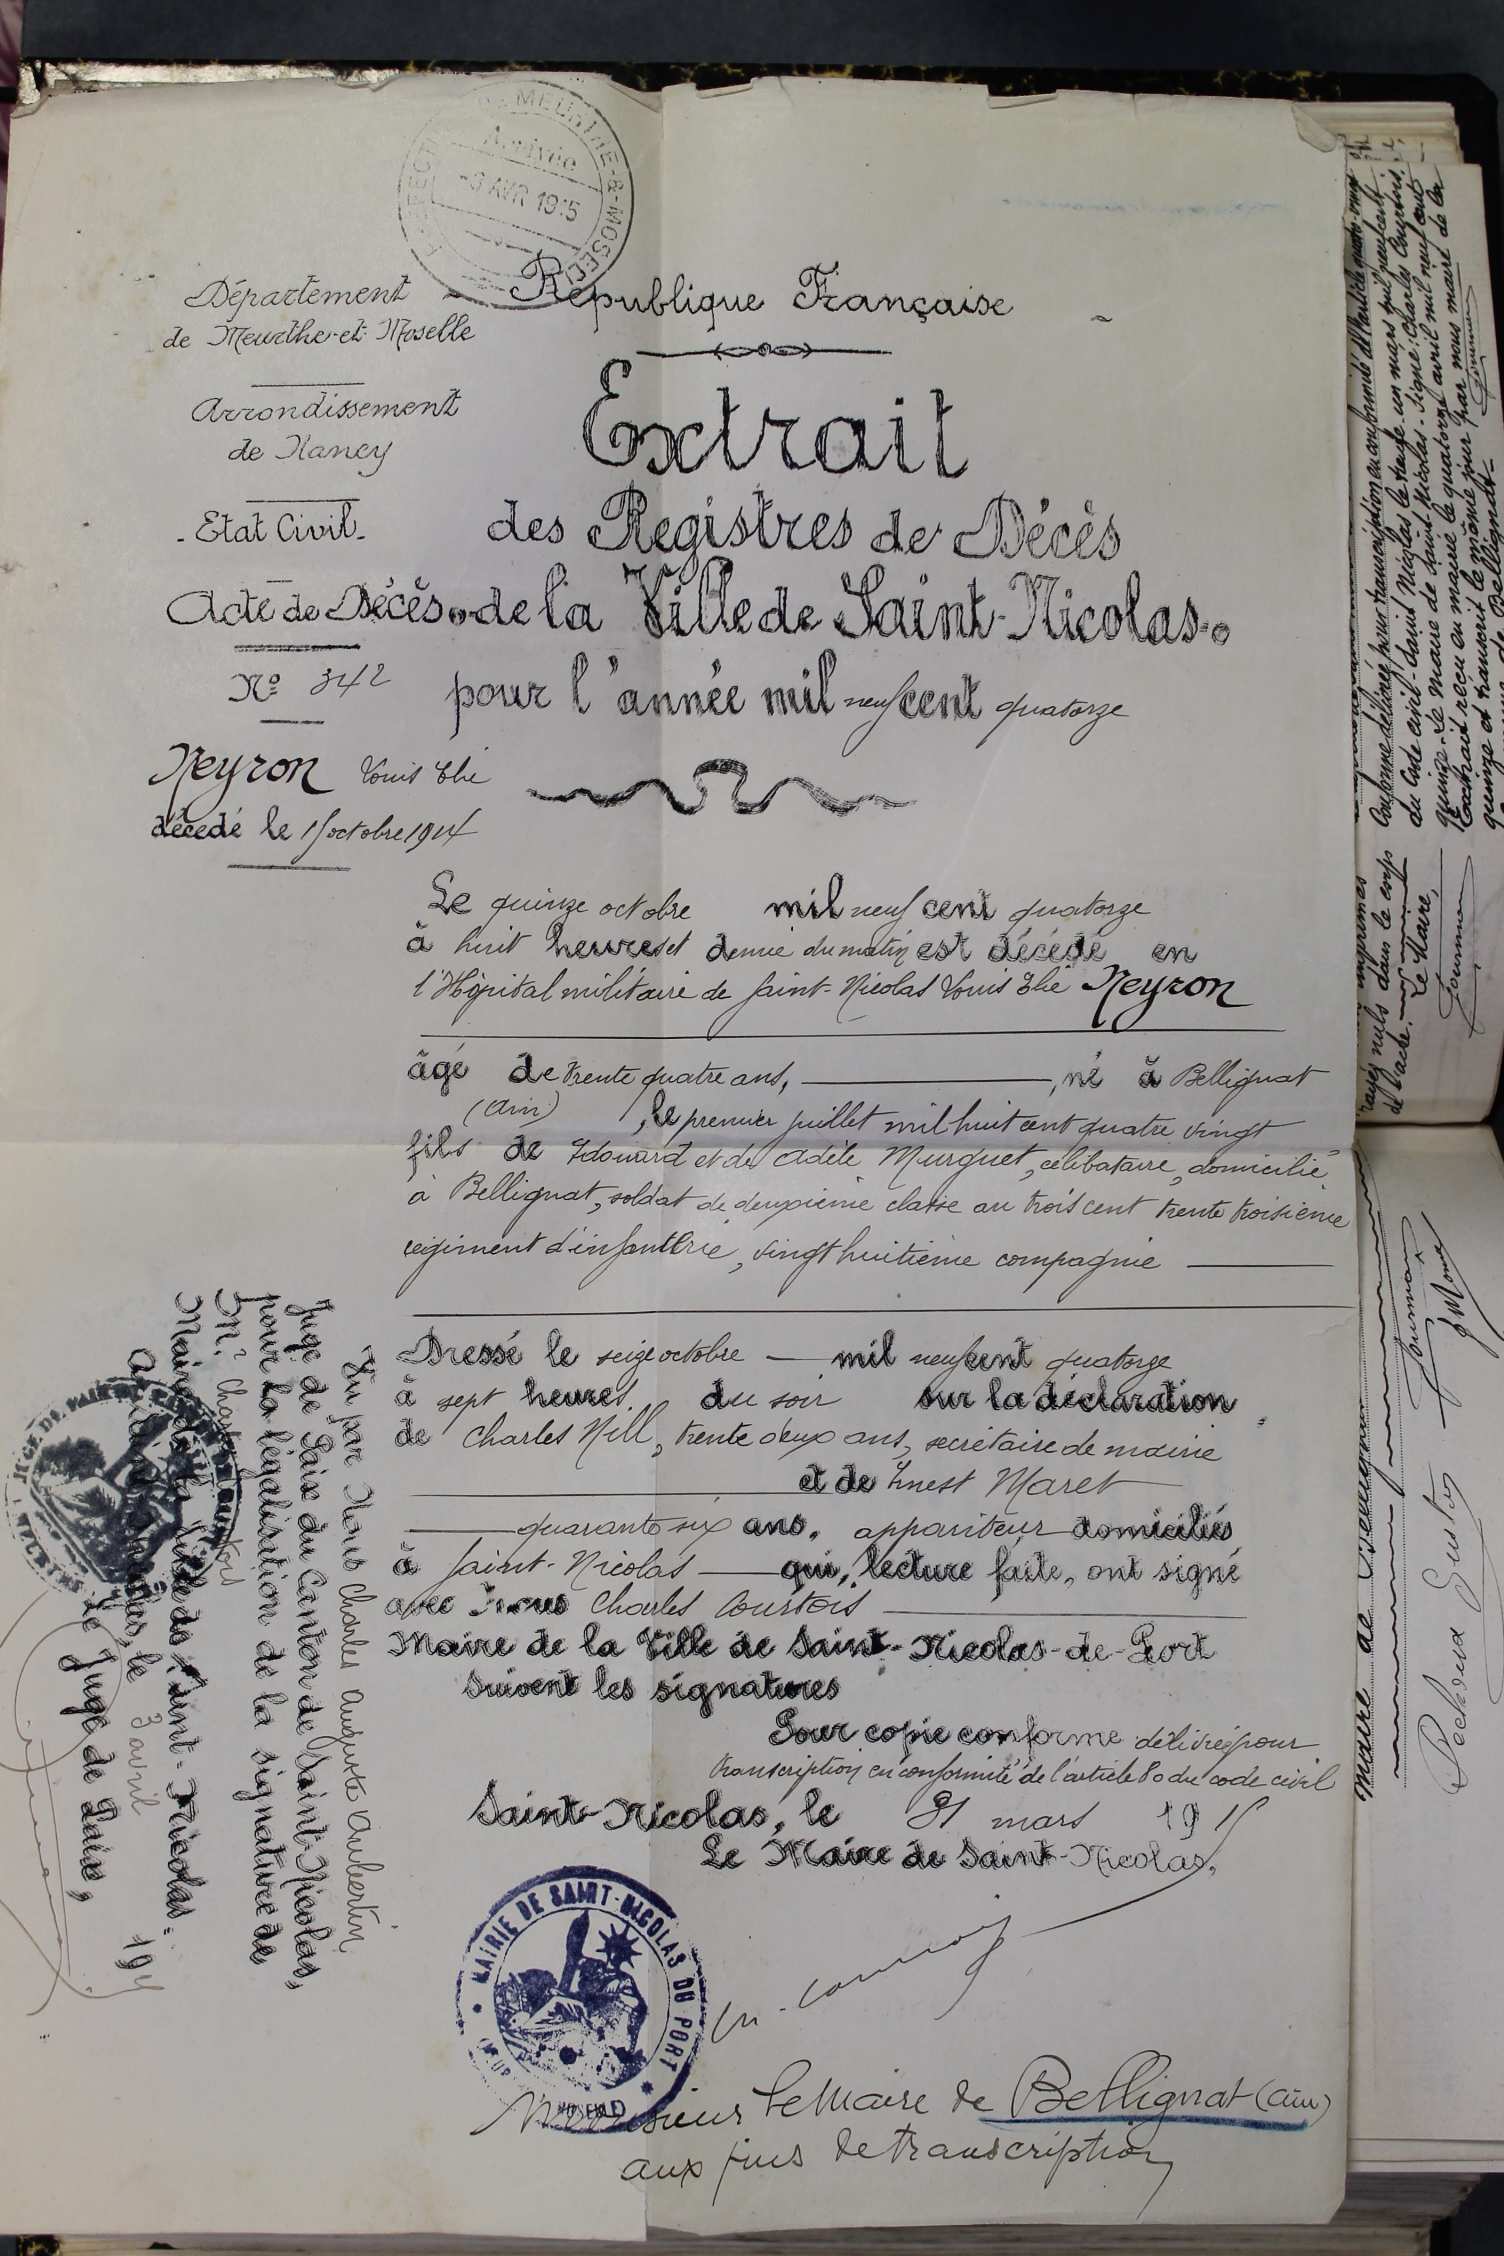 MEURTHE-&-MOSEL
Arrivée
AVR 1915
République Française
Département
de Meurthe-et-Moselle
Arrondissement
de Nancy
- Etat Civil -
Acte de Décès
Nº 342
Neyron Louis Elie
décédé le 15 octobre 1914
Extrait
des Registres de Décès
de la Ville de Saint-Nicolas
pour l'année mil neuf cent quatorze
Le quinze octobre mil neuf cent quatorze
à huit heures et demie du matin est décédé en
l'Hôpital militaire de Saint-Nicolas Louis Elie Neyron
âgé de trente quatre ans, né à Bellignat
(Ain), le premier juillet mil huit cent quatre vingt
fils de Edouard et de Adèle Murguet, célibataire, domicilié
à Bellignat, soldat de deuxième classe au trois cent trente troisième
régiment d'infanterie, vingt huitième compagnie
Dressé le seize octobre mil neuf cent quatorze
à sept heures du soir sur la déclaration
de Charles Nill, trente deux ans, secrétaire de mairie
et de Ernest Maret
quarante six ans, appariteur domiciliés
à Saint-Nicolas qui, lecture faite, ont signé
avec Nous Charles Courtois
Maire de la Ville de Saint-Nicolas-de-Port
Suivent les signatures
Pour copie conforme délivrée pour
transcription en conformité de l'article 80 du code civil
Saint-Nicolas, le 31 mars 1915
Le Maire de Saint-Nicolas,
MAIRIE DE SAINT-NICOLAS DU PORT
Monsieur le Maire de Bellignat (Ain)
aux fins de transcription
Vu par Nous Charles Auguste Aubertin
Juge de Paix du Canton de Saint-Nicolas,
pour la légalisation de la signature de
Mr Charles Courtois
Maire de la Ville de Saint-Nicolas.
le 3 avril 191
Le Juge de Paix,
Conforme délivrée pour transcription en conformité de l'article quatre-vingt
du Code civil - Saint Nicolas le trente-un mars mil neuf cent
quinze - Le Maire de Saint Nicolas - Signé: Charles Courtois.
L'extrait reçu en mairie le quatorze avril mil neuf cent
quinze et transcrit le même jour par nous maire de la
de Bellignat -
rayés nuls dans le corps
de l'acte.
Le Maire,
maire de Bellignat